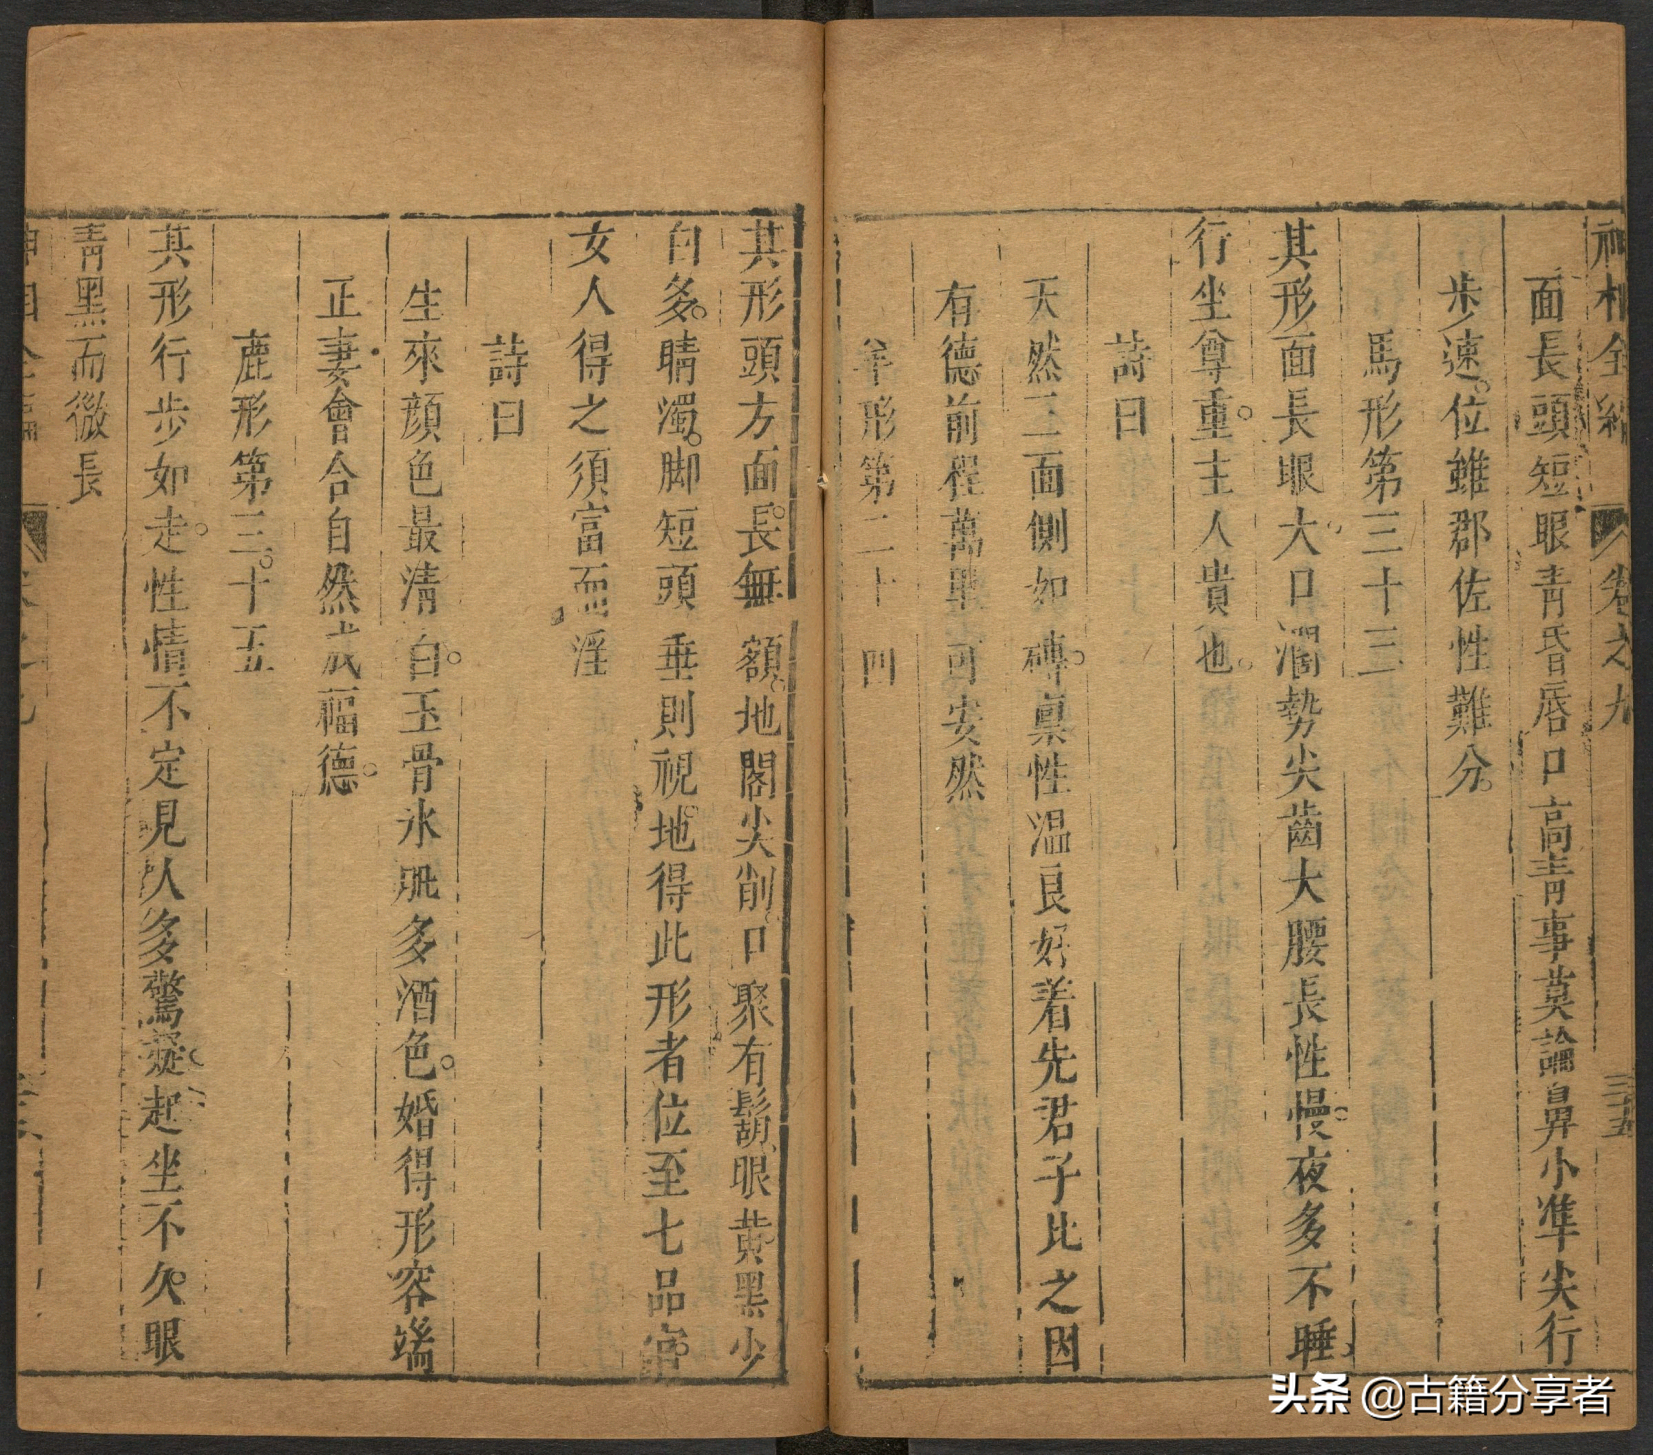 神相全編 卷之九 三五
面長頭短眼青昏唇口高青事莫論鼻小準尖行
步速位雖郡佐性難分
馬形第三十三
其形面長眼大口濶勢尖齒大腰長性慢夜多不睡
行坐尊重主人貴也
詩曰
天然三面側如磚稟性温良好着先君子比之因
有德前程萬里可安然
羊形第三十四
其形頭方面長無額地閣尖削口聚有鬍眼黄黑少
白多睛濁脚短頭垂則視地得此形者位至七品官
女人得之須富而淫
詩曰
生來顔色最清白玉骨氷肌多酒色婚得形容端
正妻會合自然成福德
鹿形第三十五
其形行步如走性情不定見人多驚疑起坐不久眼
青黑而微長
头条 @古籍分享者